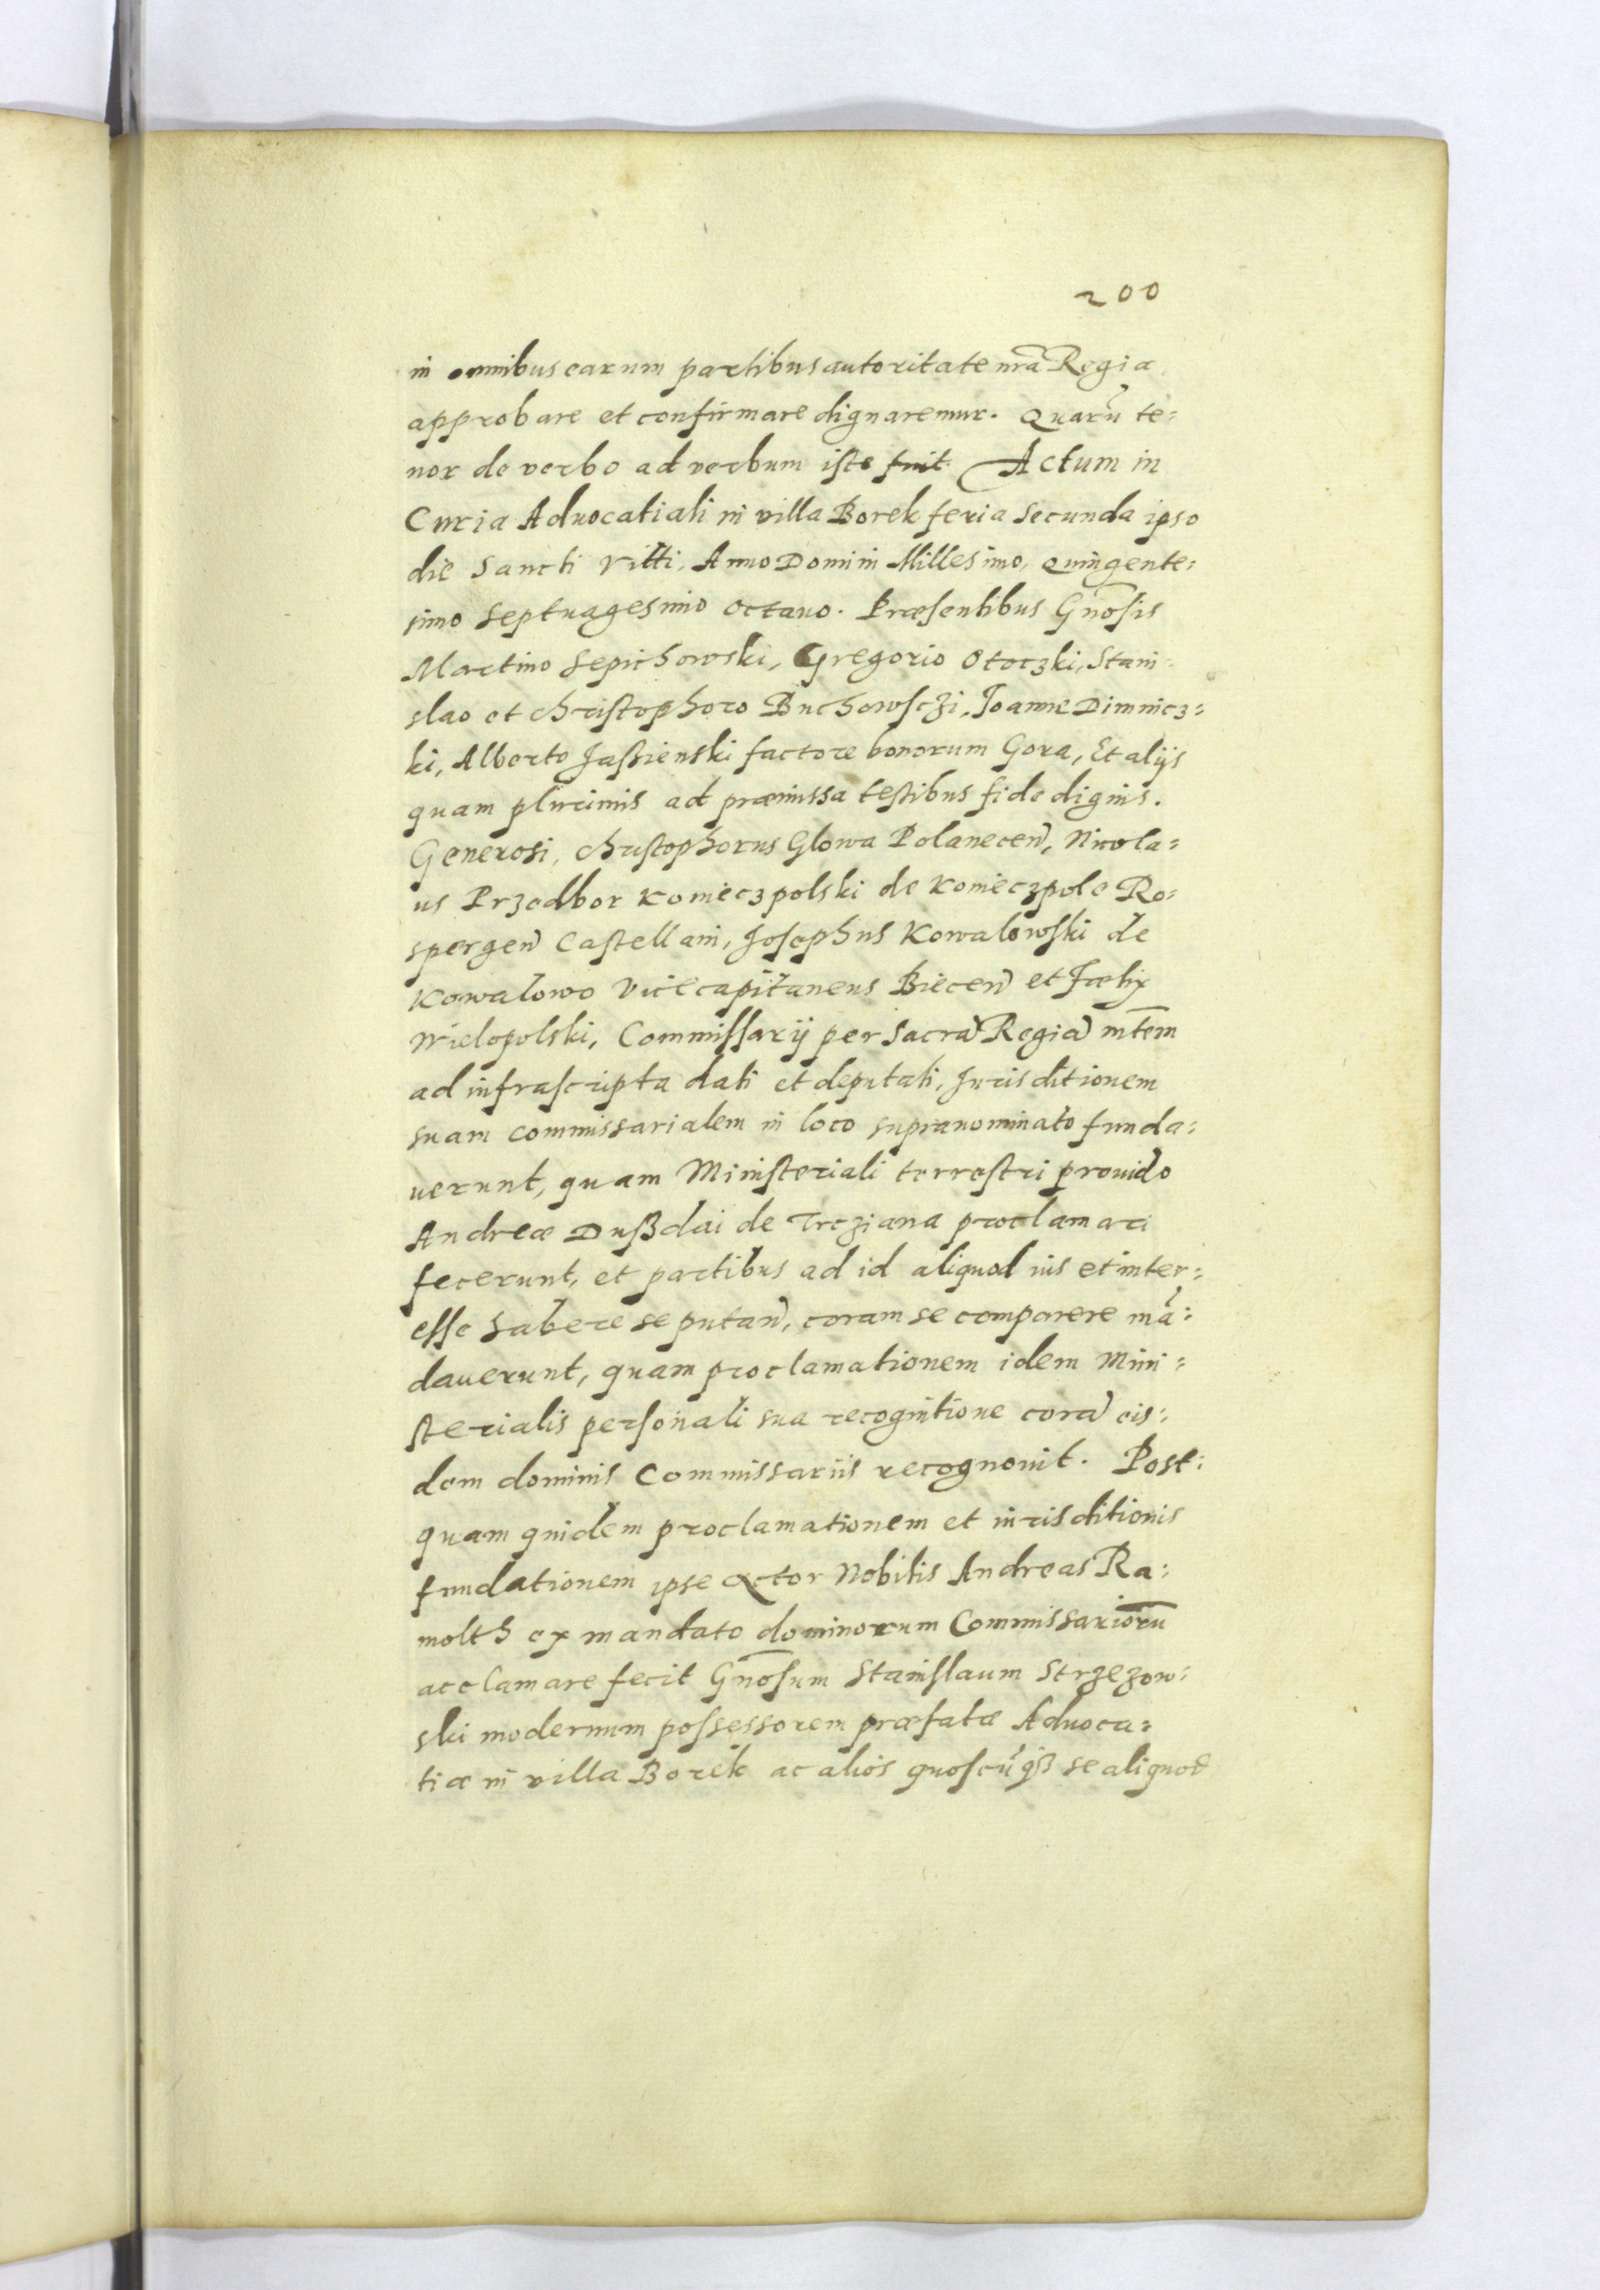 200
in omnibus earum partibus autoritate nrã Regia
approbare et confirmare dignaremur. Quarũ te:
nor de verbo ad verbum iste fuit. Actum in
Curia Aduocatiali in villa Borek feria secunda ipso
die Sancti Vitti, Anno Domini Millesimo, quingente:
simo septuagesimo octauo. Præsentibus Gnosis
Martino Sepichowski, Gregorio Otoczki, Stani:
slao et Christophoro Buchowsczi, Joanne Dimnicz:
ki, Alberto Jaßienski factore bonorum Gora, Et alijs
quam plurimis ad præmissa testibus fide dignis.
Generosi, Christophorus Glowa Polanecen̄, Nicola:
us Przedbor Konieczpolski de Konieczpole Ro:
spergen̄ Castellani, Josephus Kowalowski de
Kowalowo Vicecapitaneus Biecen̄ et Fœlix
Wielopolski, Commissarij per Sacrã Regiã mtem
ad infrascripta dati et deputati, Jurisditionem
suam commissarialem in loco supranominato funda:
uerunt, quam Ministeriali terrestri prouido
Andreæ Dußdai de Trcziana proclamari
fecerunt, et partibus ad id aliquod ius et inter:
esse habere se putan̄, coram se comparere mã:
dauerunt, quam proclamationem idem Mini:
sterialis personali sua recognitione corã eis:
dem dominis Commissariis recognouit. Post:
quam quidem proclamationem et iurisditionis
fundationem ipse Actor Nobilis Andreas Ra:
molth ex mandato dominorum Commissariorũ
acclamare fecit Gnosum Stanislaum Strzezow:
ski modernum possessorem præfatæ Aduoca:
tiæ in villa Borek ac alios quoscũqß se aliquod